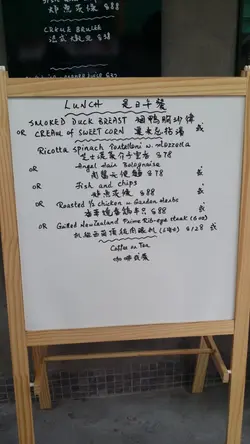 CRÈME BRULEE
$88
LUNCH 是日午餐
SMOKED DUCK BREAST 烟鴨胸沙律
OR CREAM OF SWEET CORN 粟米忌廉湯 或
Ricotta spinach Portelloni w Mozzerella
芝士菠菜 $78
OR Angel Hair Bolognaise 或
肉醬天使麵 $78
OR Fish and chips 或
炸魚薯條 $88
OR Roasted ½ chicken w Garden Herbs 或
香草燒春雞半只 $88
OR Grilled New Zealand Prime Rib-eye steak (6oz) 或
西冷 肉眼扒 (6安士) $128
Coffee or Tea
咖啡或茶